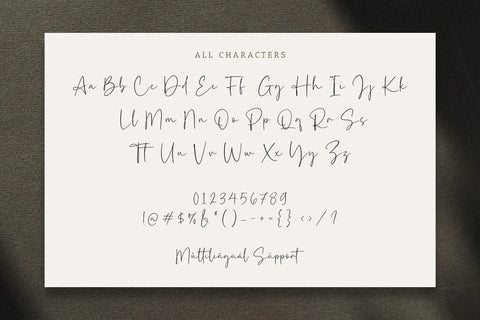 ALL CHARACTERS
Aa Bb Cc Dd Ee Ff Gg Hh Ii Jj Kk
Ll Mm Nn Oo Pp Qq Rr Ss
Tt Uu Vv Ww Xx Yy Zz
0123456789
!@#$%&*()_-+={}<>/?
Multilingual Support